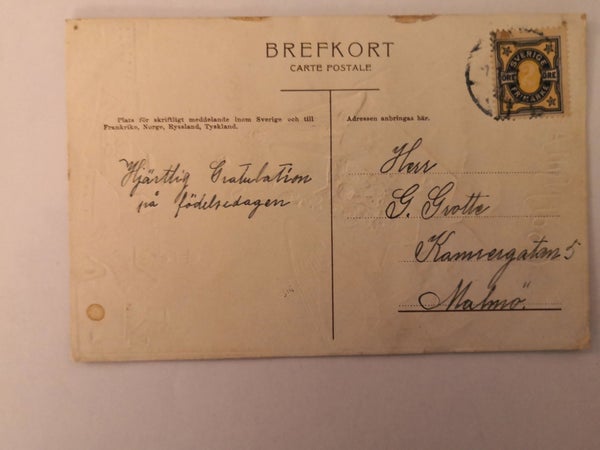 BREFKORT
CARTE POSTALE
SVERIGE
ÖRE ÖRE
FRIMÄRKE
Plats för skriftligt meddelande inom Sverige och till
Frankrike, Norge, Ryssland, Tyskland.
Adressen anbringas här.
Hjärtlig Gratulation
på födelsedagen
Herr
G. Grotte
5
Malmö